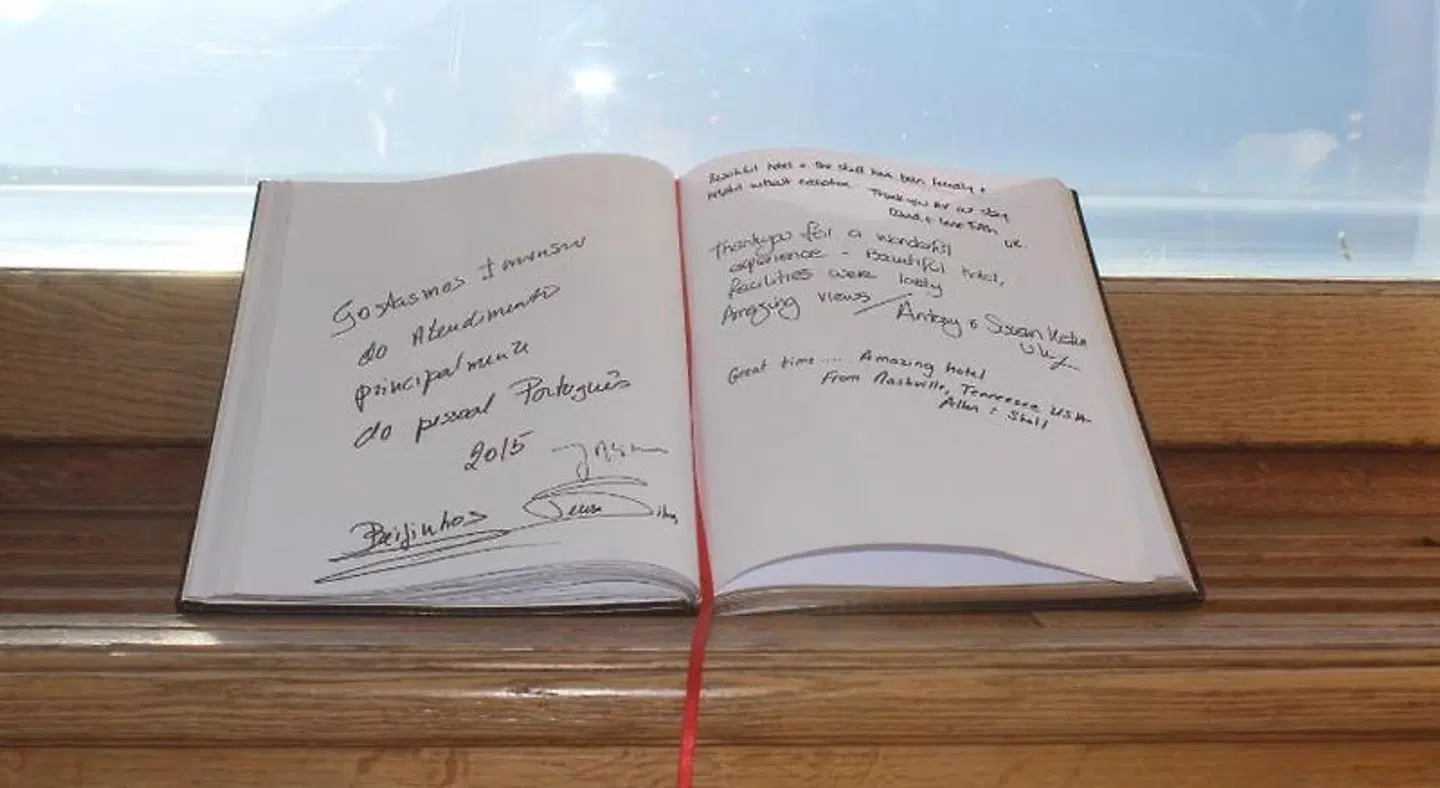 Gostasmos Imenso
do Atendimento
principalmente
do pessoal Português
2015
Beijinhos
Beautiful hotel + the staff have been friendly +
helpful without exception. Thank you for our stay
UK.
Thankyou for a wonderful
experience - Beautiful hotel,
facilities were lovely
Amazing views / Antony & Susan
UK
Great time .... Amazing hotel
From Nashville, Tennessee USA
Allen &